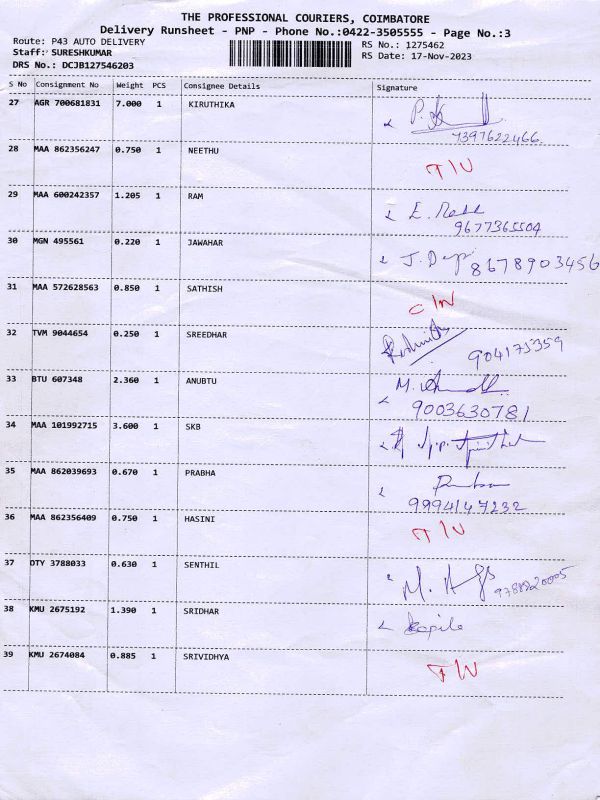 THE PROFESSIONAL COURIERS, COIMBATORE
Delivery Runsheet - PNP - Phone No.:0422-3505555 - Page No.:3
Route: P43 AUTO DELIVERY
Staff: SURESHKUMAR
DRS No.: DCJB127546203
RS No.: 1275462
RS Date: 17-Nov-2023
S No Consignment No Weight PCS Consignee Details Signature
27 AGR 700681831 7.000 1 KIRUTHIKA
7397622466
28 MAA 862356247 0.750 1 NEETHU
29 MAA 600242357 1.205 1 RAM
9677365504
30 MGN 495561 0.220 1 JAWAHAR 8678903456
31 MAA 572628563 0.850 1 SATHISH
32 TVM 9044654 0.250 1 SREEDHAR
904175359
33 BTU 607348 2.360 1 ANUBTU
9003630781
34 MAA 101992715 3.600 1 SKB
35 MAA 862039693 0.670 1 PRABHA
9994147232
36 MAA 862356409 0.750 1 HASINI
37 OTY 3788033 0.630 1 SENTHIL
38 KMU 2675192 1.390 1 SRIDHAR
39 KMU 2674084 0.885 1 SRIVIDHYA